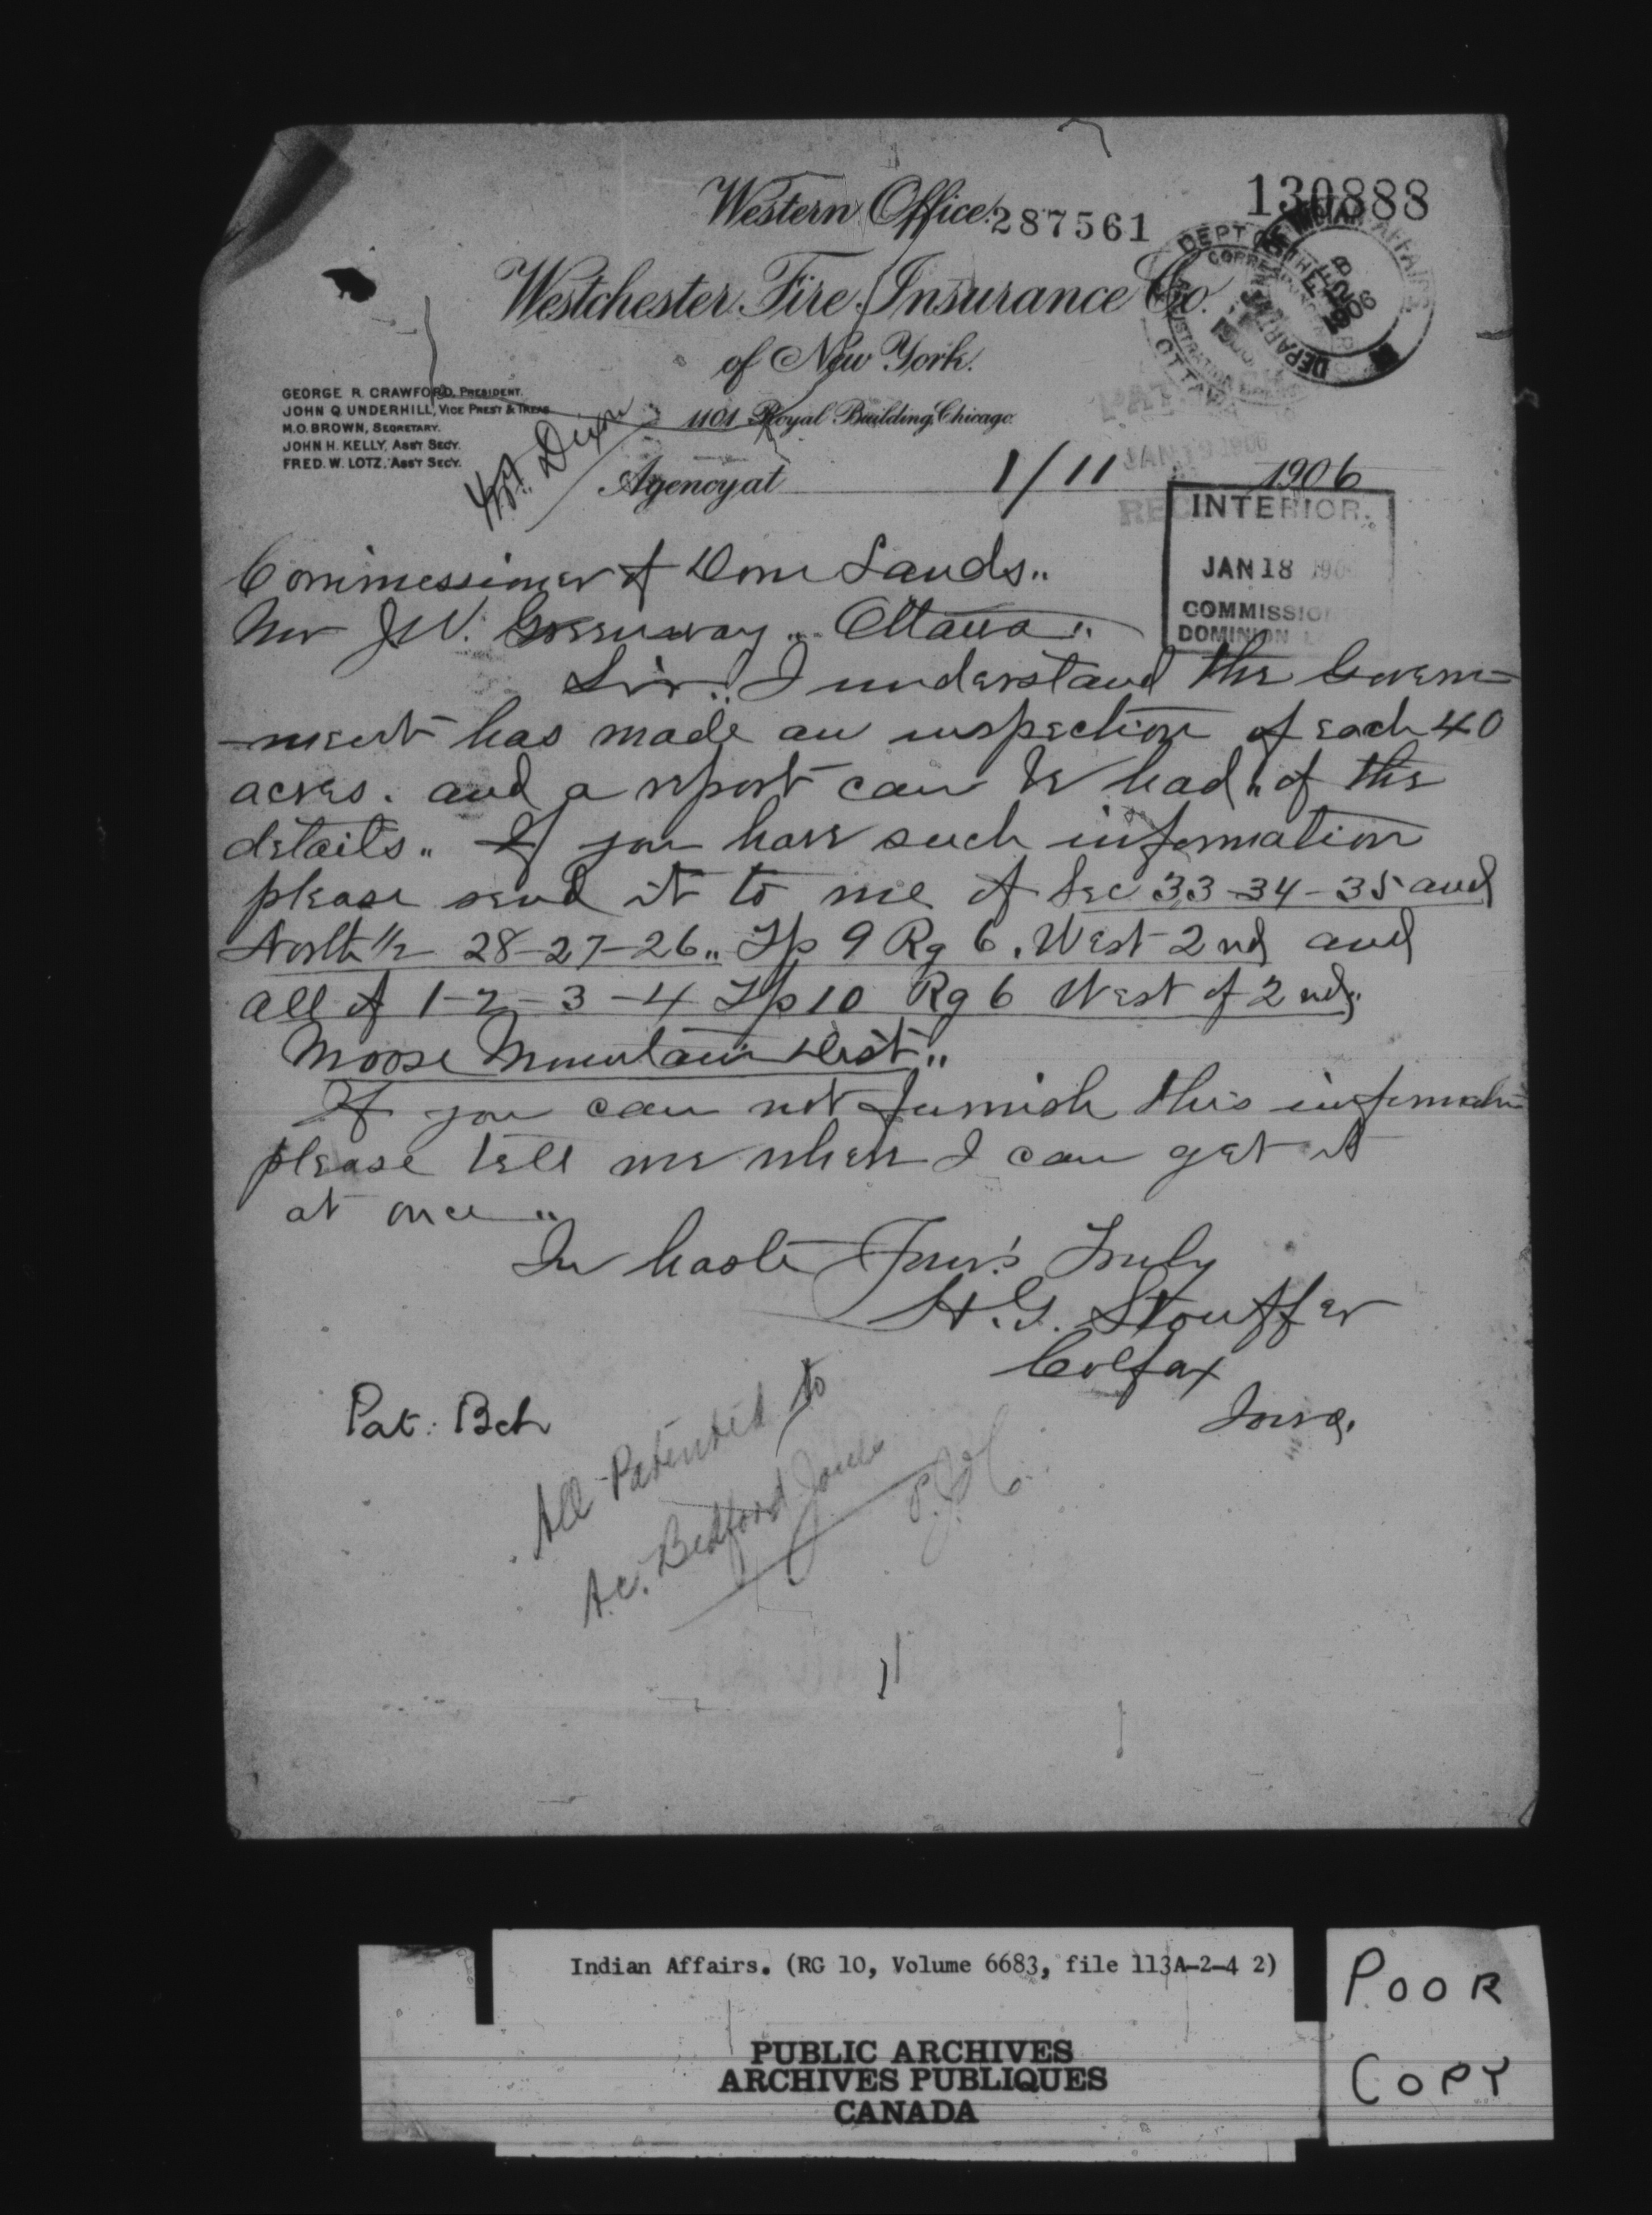 Western Office.
287561
130888
Westchester Fire Insurance Co.
of New York.
GEORGE R. CRAWFORD, PRESIDENT.
JOHN Q. UNDERHILL, VICE PREST & TREAS
M.O. BROWN, SECRETARY.
JOHN H. KELLY, ASS'T SEC'Y.
FRED. W. LOTZ. ASS'T SEC'Y.
1101 Royal Building, Chicago.
Dixon
Agency at 1/11 1906
INTERIOR.
JAN 18 190
COMMISSIO
DOMINION L
Commissioner of Dom Lands..
Mr J.W. Greenway.. Ottawa..
Sir.. I understand the Govern=
-ment has made an inspection of each 40
acres. and a report can be had.. of the
details.. If you have such information
please send it to me of Sec 33-34-35 and
North 1/2 28-27-26.. Tp 9 Rg 6. West 2nd and
all of 1-2-3-4 Tp 10 Rg 6 West of 2nd..
Moose Mountain Dist..
If you can not furnish this informatin
please tell me where I can get it
at once..
In haste Your's Truly
H.G. Stouffer
Colfax
Iowa.
Pat: Bch
All Patented to
A.C. Bedford Jones
Indian Affairs. (RG 10, Volume 6683, file 113A-2-4 2)
PUBLIC ARCHIVES
ARCHIVES PUBLIQUES
CANADA
POOR
COPY